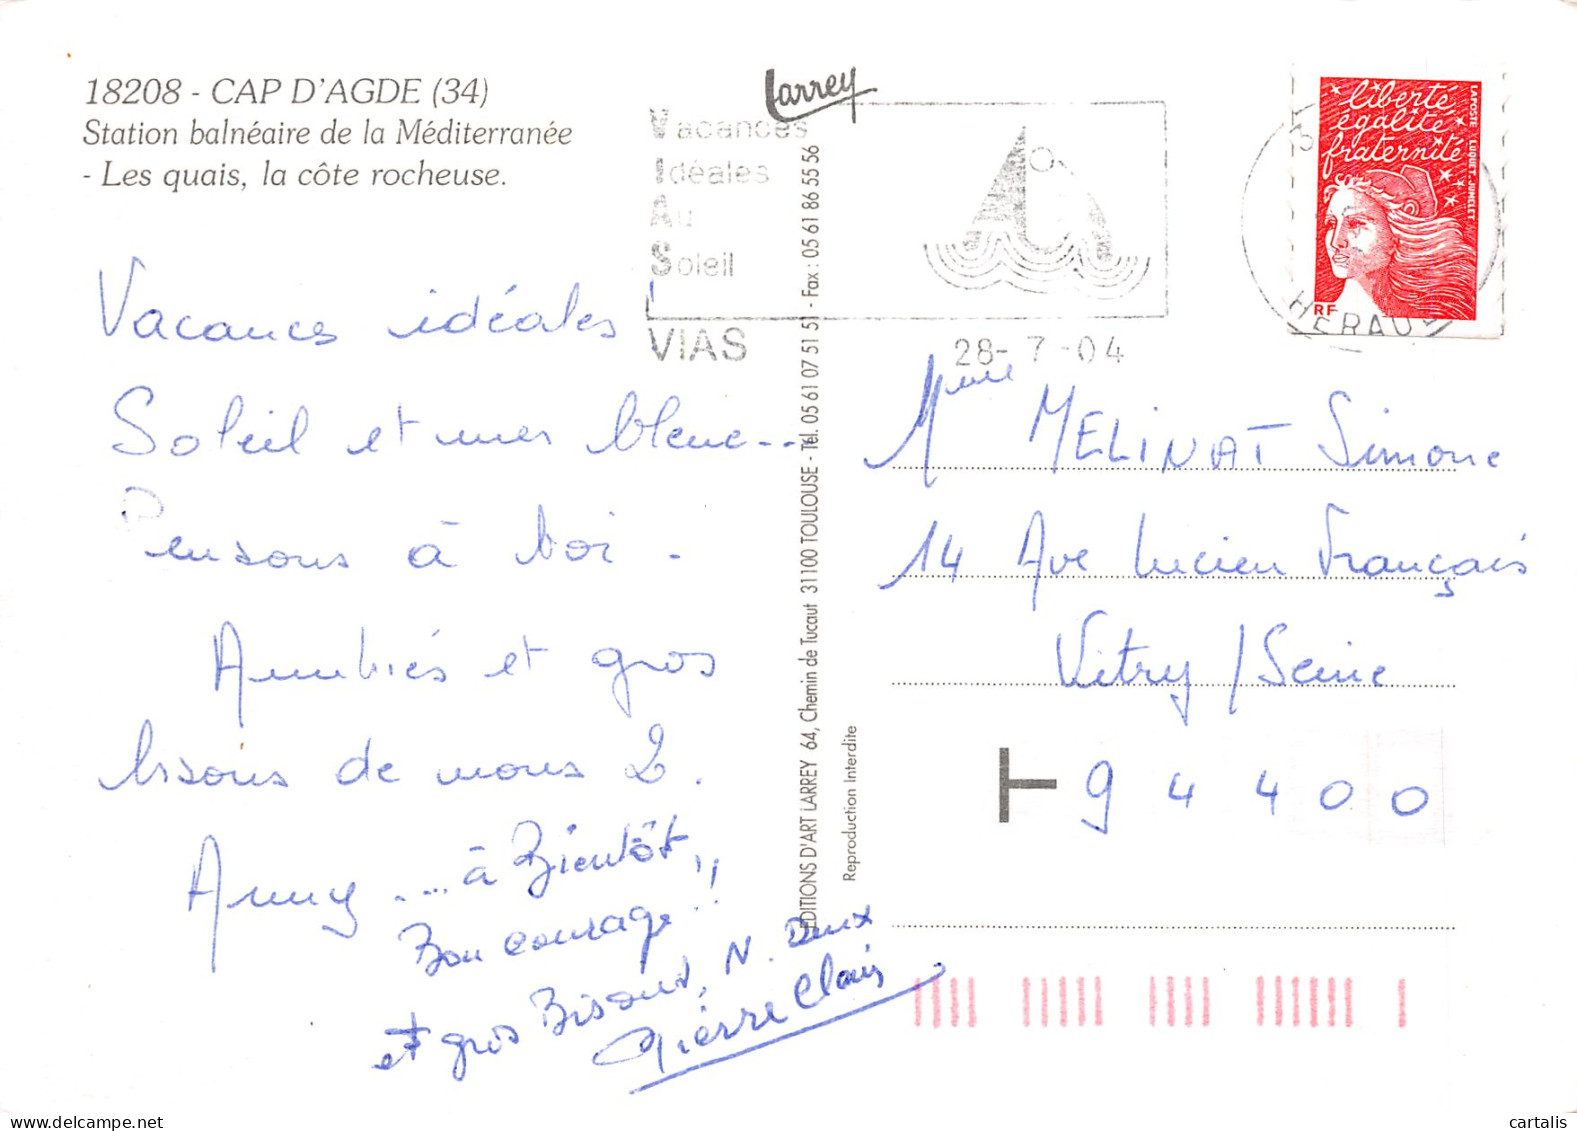 18208 - CAP D'AGDE (34)
Station balnéaire de la Méditerranée
- Les quais, la côte rocheuse.
Larrey
Vacances
Idéales
Au
Soleil
VIAS
28-7-04
HERAULT
liberté
égalité
fraternité
RF
LA POSTE LUQUET-JUMELET
Vacances idéales !
Soleil et mer bleue...
Pensons à toi.
Amitiés et gros
bisous de nous 2.
Anny .... à Bientôt,
Bon courage !!
et gros Bisous, N. Deux
Pierre
EDITIONS D'ART LARREY 64, Chemin de Tucaut 31100 TOULOUSE - Tél. 05 61 07 51 51 - Fax : 05 61 86 55 56
Reproduction Interdite
Mme MELINAT Simone
14 Ave Lucien Français
Vitry / Seine
T 94400
cartalis
delcampe.net